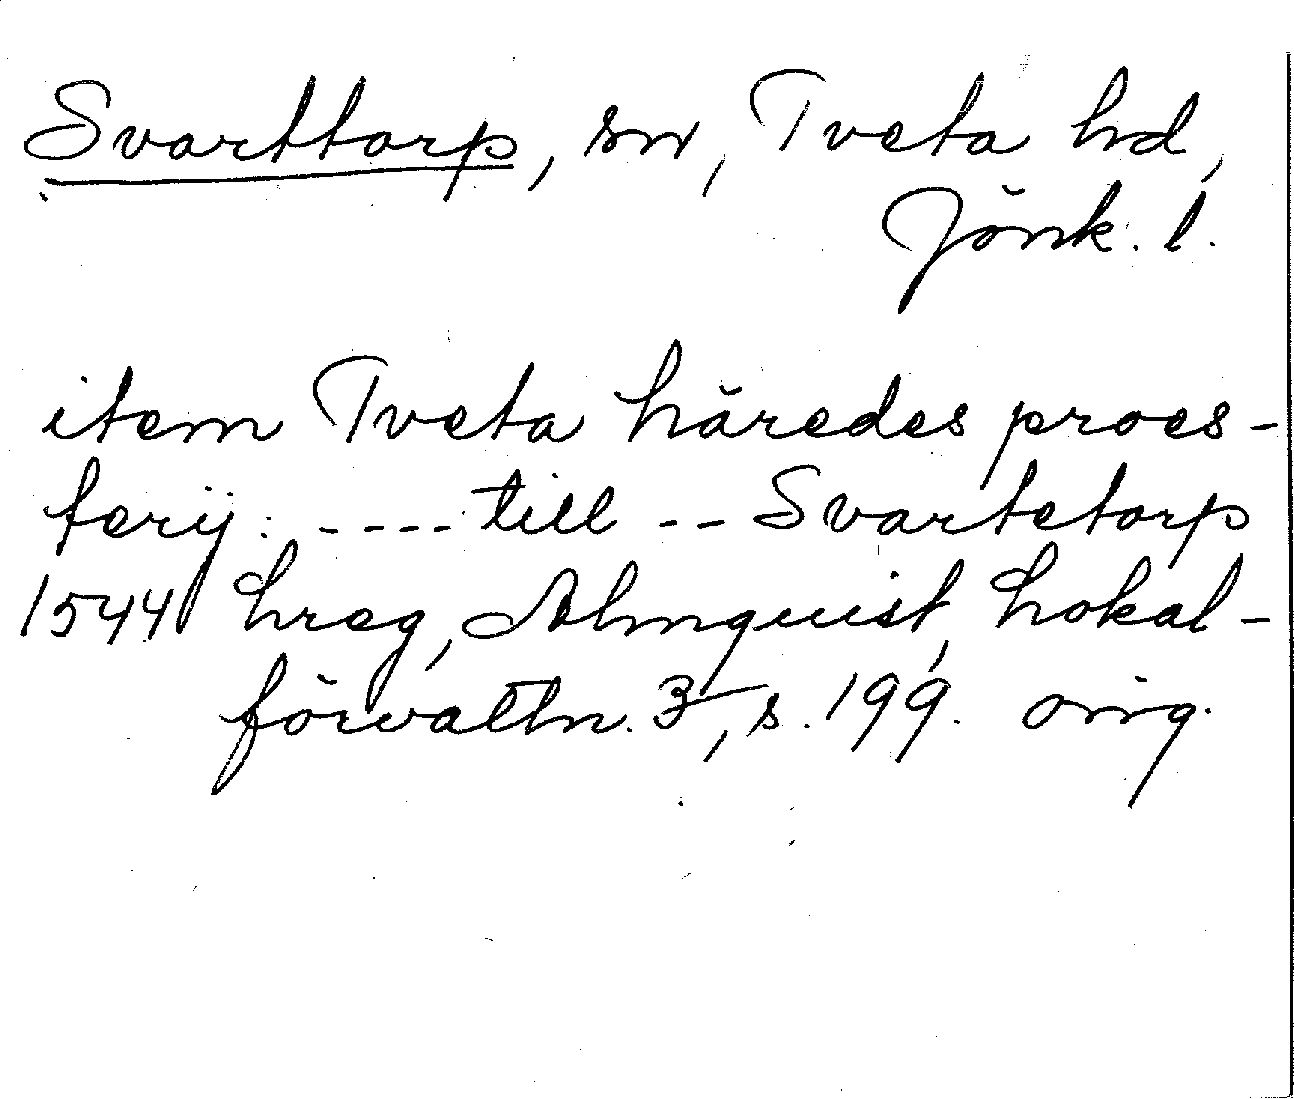 Svarttorp, sn, Tveta hd,
Jönk. l.
item Tveta häredes proes-
terij: ---- till -- Svartetorp
1544 hreg, Almquist, Lokal-
förvaltn. 3, s. 199. orig.